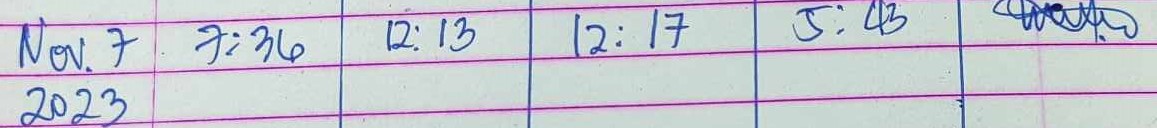 Nov. 7 7:36 12:13 12:17 5:43
2023